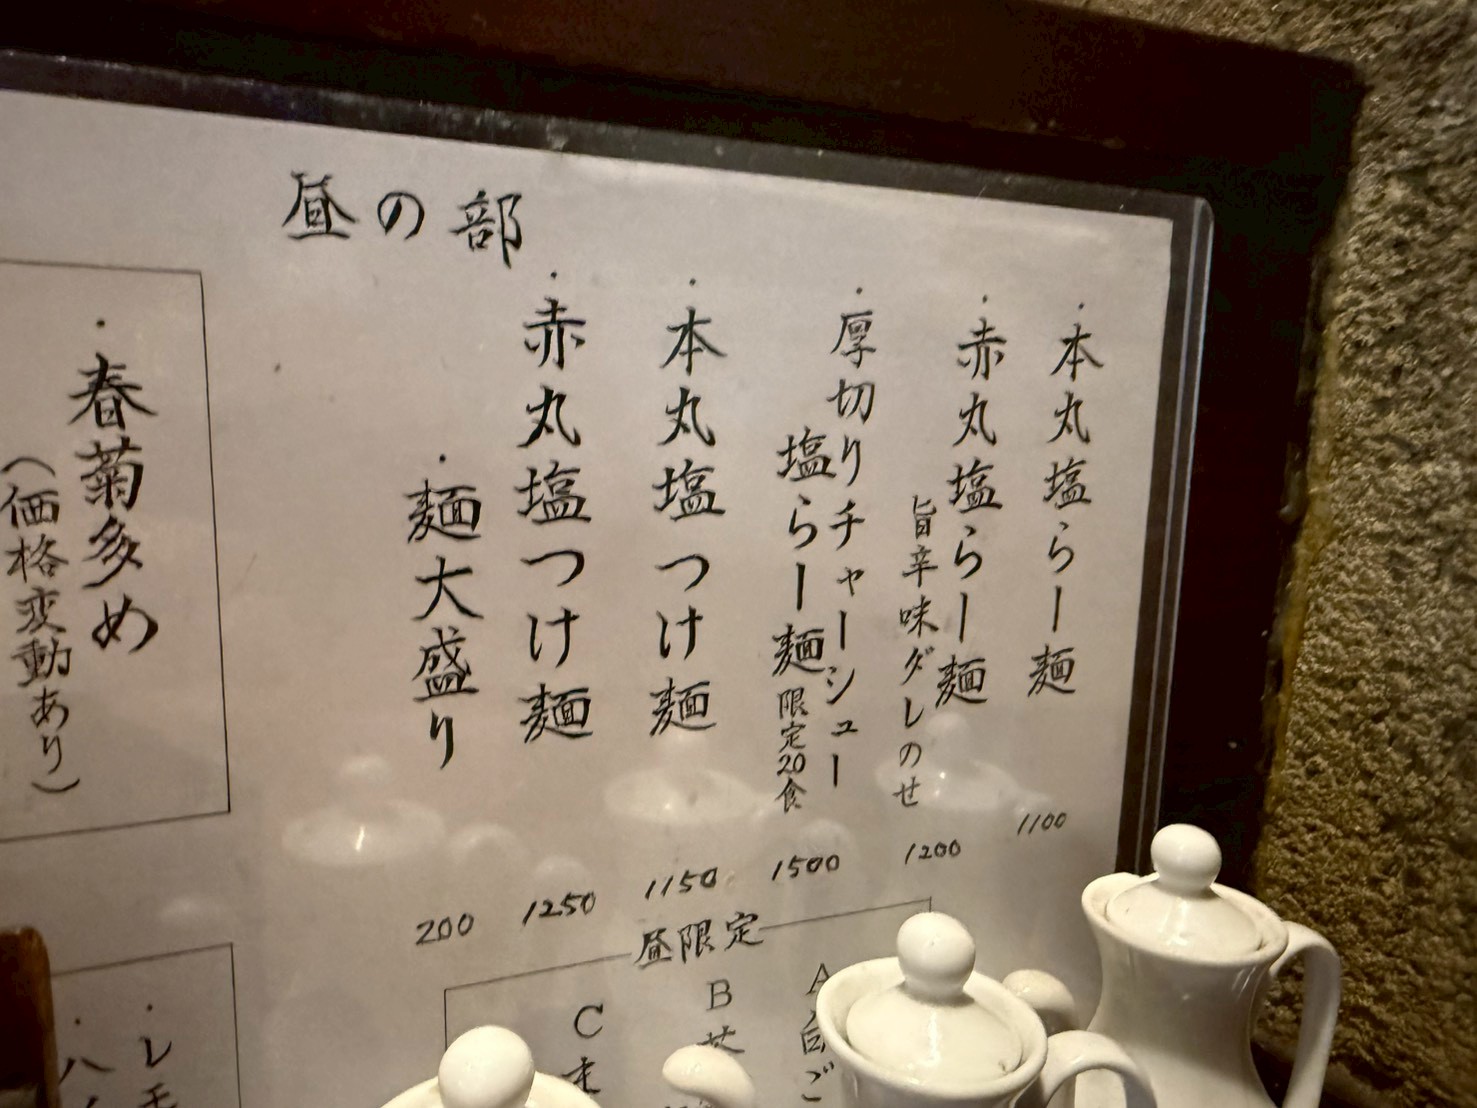 昼の部
・本丸塩らー麺
1100
・赤丸塩らー麺
旨辛味ダレのせ
1200
・厚切りチャーシュー
塩らー麺 限定20食
1500
・本丸塩つけ麺
1150
・赤丸塩つけ麺
1250
・麺大盛り
200
・春菊多め
(価格変動あり)
昼限定
A
B
C
・レモ
・ハ